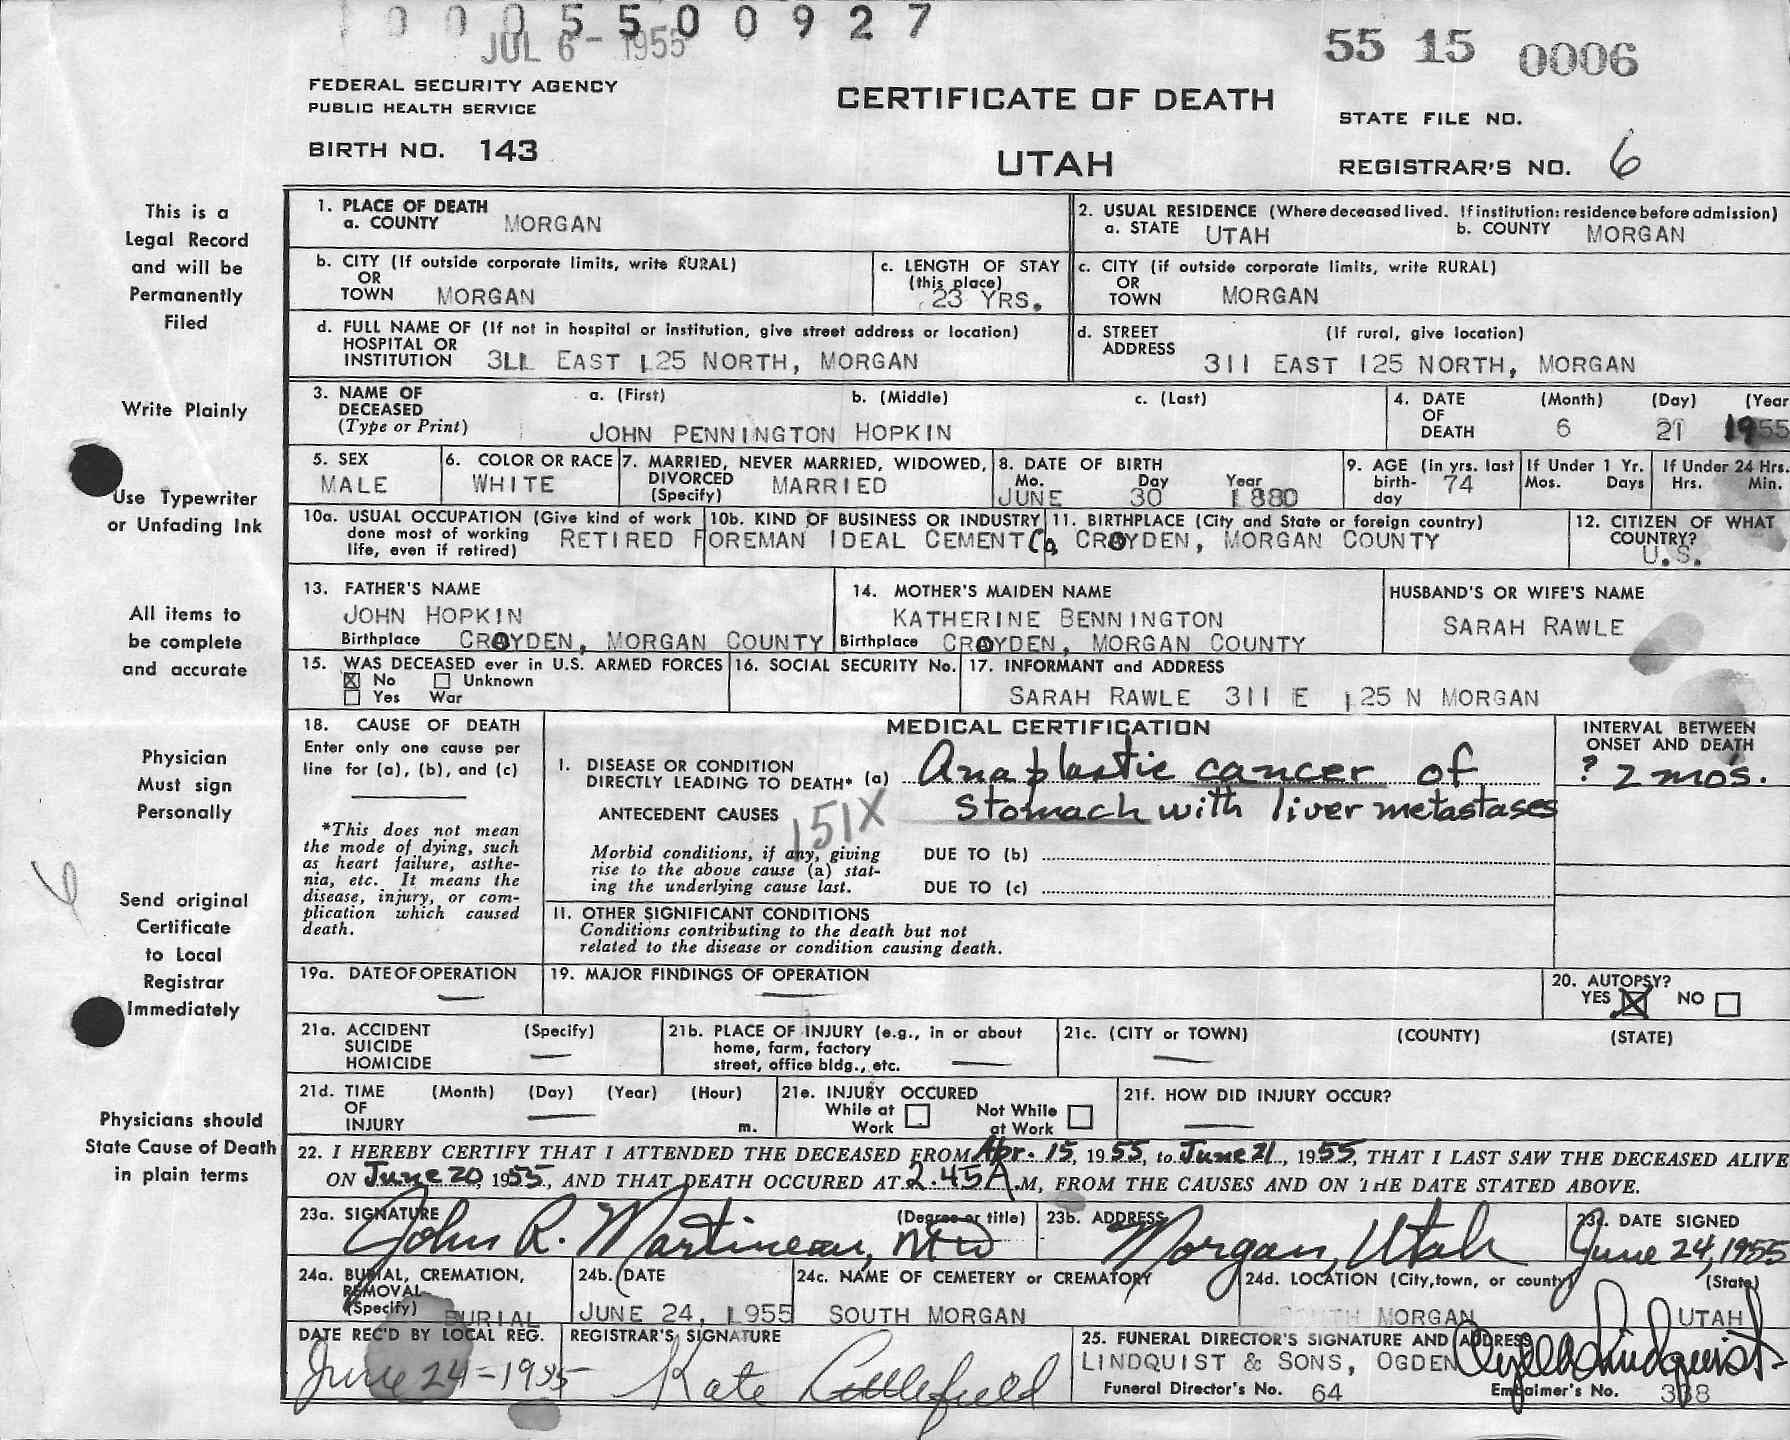 0 0 0 5 5 0 0 9 2 7
JUL 6 - 1955
55 15 0006
FEDERAL SECURITY AGENCY
PUBLIC HEALTH SERVICE
CERTIFICATE OF DEATH
STATE FILE NO.
BIRTH NO. 143
UTAH
REGISTRAR'S NO. 6
This is a
Legal Record
and will be
Permanently
Filed
Write Plainly
Use Typewriter
or Unfading Ink
All items to
be complete
and accurate
Physician
Must sign
Personally
6
Send original
Certificate
to Local
Registrar
Immediately
Physicians should
State Cause of Death
in plain terms
1. PLACE OF DEATH
a. COUNTY MORGAN
2. USUAL RESIDENCE (Where deceased lived. If institution: residence before admission)
a. STATE UTAH b. COUNTY MORGAN
b. CITY (If outside corporate limits, write RURAL)
OR
TOWN MORGAN
c. LENGTH OF STAY
(this place)
23 YRS.
c. CITY (if outside corporate limits, write RURAL)
OR
TOWN MORGAN
d. FULL NAME OF (If not in hospital or institution, give street address or location)
HOSPITAL OR
INSTITUTION 3LL EAST 125 NORTH, MORGAN
d. STREET (If rural, give location)
ADDRESS
311 EAST 125 NORTH, MORGAN
3. NAME OF a. (First) b. (Middle) c. (Last)
DECEASED
(Type or Print) JOHN PENNINGTON HOPKIN
4. DATE (Month) (Day) (Year
OF
DEATH 6 21 1955
5. SEX
MALE
6. COLOR OR RACE
WHITE
7. MARRIED, NEVER MARRIED, WIDOWED,
DIVORCED
(Specify) MARRIED
8. DATE OF BIRTH
Mo. Day Year
JUNE 30 1880
9. AGE (in yrs. last
birth- 74
day
If Under 1 Yr.
Mos. Days
If Under 24 Hrs.
Hrs. Min.
10a. USUAL OCCUPATION (Give kind of work
done most of working
life, even if retired) RETIRED FOREMAN
10b. KIND OF BUSINESS OR INDUSTRY
IDEAL CEMENT Co.
11. BIRTHPLACE (City and State or foreign country)
CROYDEN, MORGAN COUNTY
12. CITIZEN OF WHAT
COUNTRY?
U.S.
13. FATHER'S NAME
JOHN HOPKIN
Birthplace CROYDEN, MORGAN COUNTY
14. MOTHER'S MAIDEN NAME
KATHERINE BENNINGTON
Birthplace CROYDEN, MORGAN COUNTY
HUSBAND'S OR WIFE'S NAME
SARAH RAWLE
15. WAS DECEASED ever in U.S. ARMED FORCES
☒ No ☐ Unknown
☐ Yes War
16. SOCIAL SECURITY No.
17. INFORMANT and ADDRESS
SARAH RAWLE 311 E 125 N MORGAN
18. CAUSE OF DEATH
Enter only one cause per
line for (a), (b), and (c)
*This does not mean
the mode of dying, such
as heart failure, asthe-
nia, etc. It means the
disease, injury, or com-
plication which caused
death.
MEDICAL CERTIFICATION
I. DISEASE OR CONDITION
DIRECTLY LEADING TO DEATH* (a) Anaplastic cancer of
Stomach with liver metastases
INTERVAL BETWEEN
ONSET AND DEATH
? 2 mos.
ANTECEDENT CAUSES
151X
Morbid conditions, if any, giving
rise to the above cause (a) stat-
ing the underlying cause last.
DUE TO (b)
DUE TO (c)
II. OTHER SIGNIFICANT CONDITIONS
Conditions contributing to the death but not
related to the disease or condition causing death.
19a. DATE OF OPERATION
—
19. MAJOR FINDINGS OF OPERATION
—
20. AUTOPSY?
YES ☒ NO ☐
21a. ACCIDENT (Specify)
SUICIDE
HOMICIDE —
21b. PLACE OF INJURY (e.g., in or about
home, farm, factory
street, office bldg., etc. —
21c. (CITY or TOWN) (COUNTY) (STATE)
—
21d. TIME (Month) (Day) (Year) (Hour)
OF —
INJURY m.
21e. INJURY OCCURED
While at ☐ Not While ☐
Work at Work
21f. HOW DID INJURY OCCUR?
—
22. I HEREBY CERTIFY THAT I ATTENDED THE DECEASED FROM Apr. 15, 1955, to June 21, 1955, THAT I LAST SAW THE DECEASED ALIVE
ON June 20, 1955, AND THAT DEATH OCCURED AT 2.45A.M, FROM THE CAUSES AND ON THE DATE STATED ABOVE.
23a. SIGNATURE (Degree or title)
John R. Martineau, MD
23b. ADDRESS
Morgan, Utah
23c. DATE SIGNED
June 24, 1955
24a. BURIAL, CREMATION,
REMOVAL
(Specify) BURIAL
24b. DATE
JUNE 24, 1955
24c. NAME OF CEMETERY or CREMATORY
SOUTH MORGAN
24d. LOCATION (City, town, or county) (State)
SOUTH MORGAN UTAH
DATE REC'D BY LOCAL REG.
June 24-1955
REGISTRAR'S SIGNATURE
Kate Littlefield
25. FUNERAL DIRECTOR'S SIGNATURE AND ADDRESS
LINDQUIST & SONS, OGDEN
Funeral Director's No. 64 Embalmer's No. 338